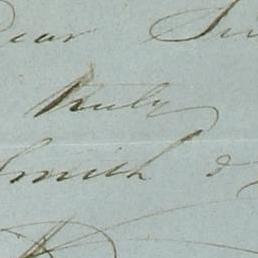 Dear Sir
Truly
Smith &